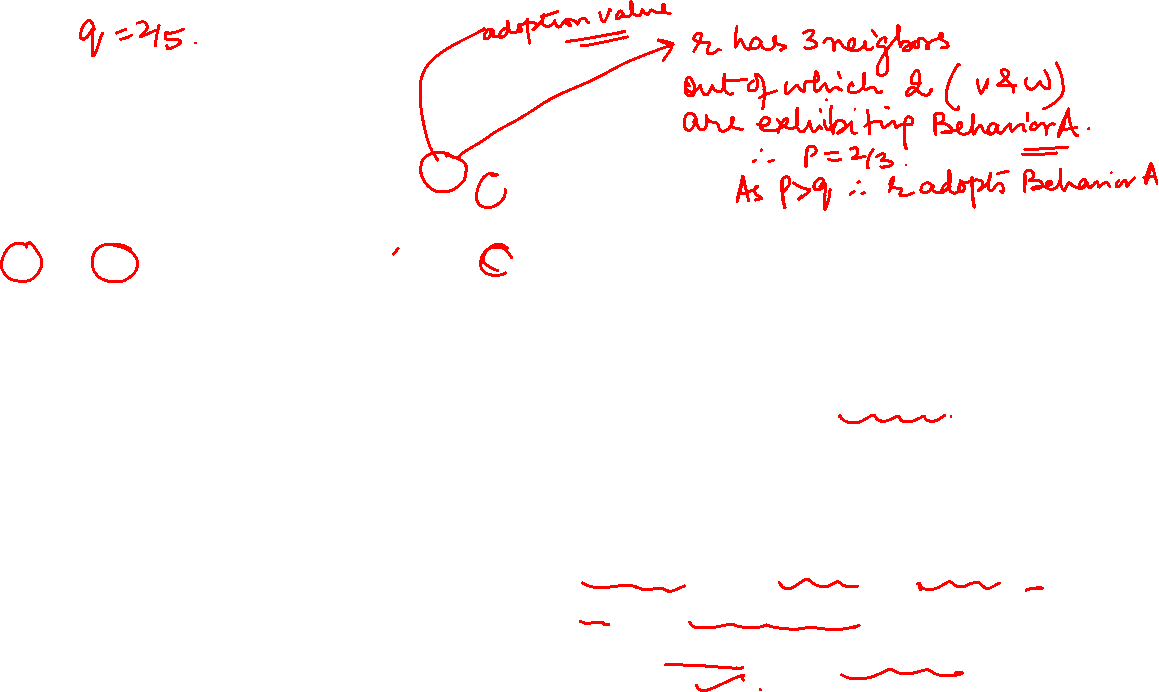 q = 2/5.
adoption value
r has 3 neigbors
out of which 2 (v & w)
are exhibiting Behavior A.
∴ P = 2/3.
As P>q ∴ r adopts Behavior A